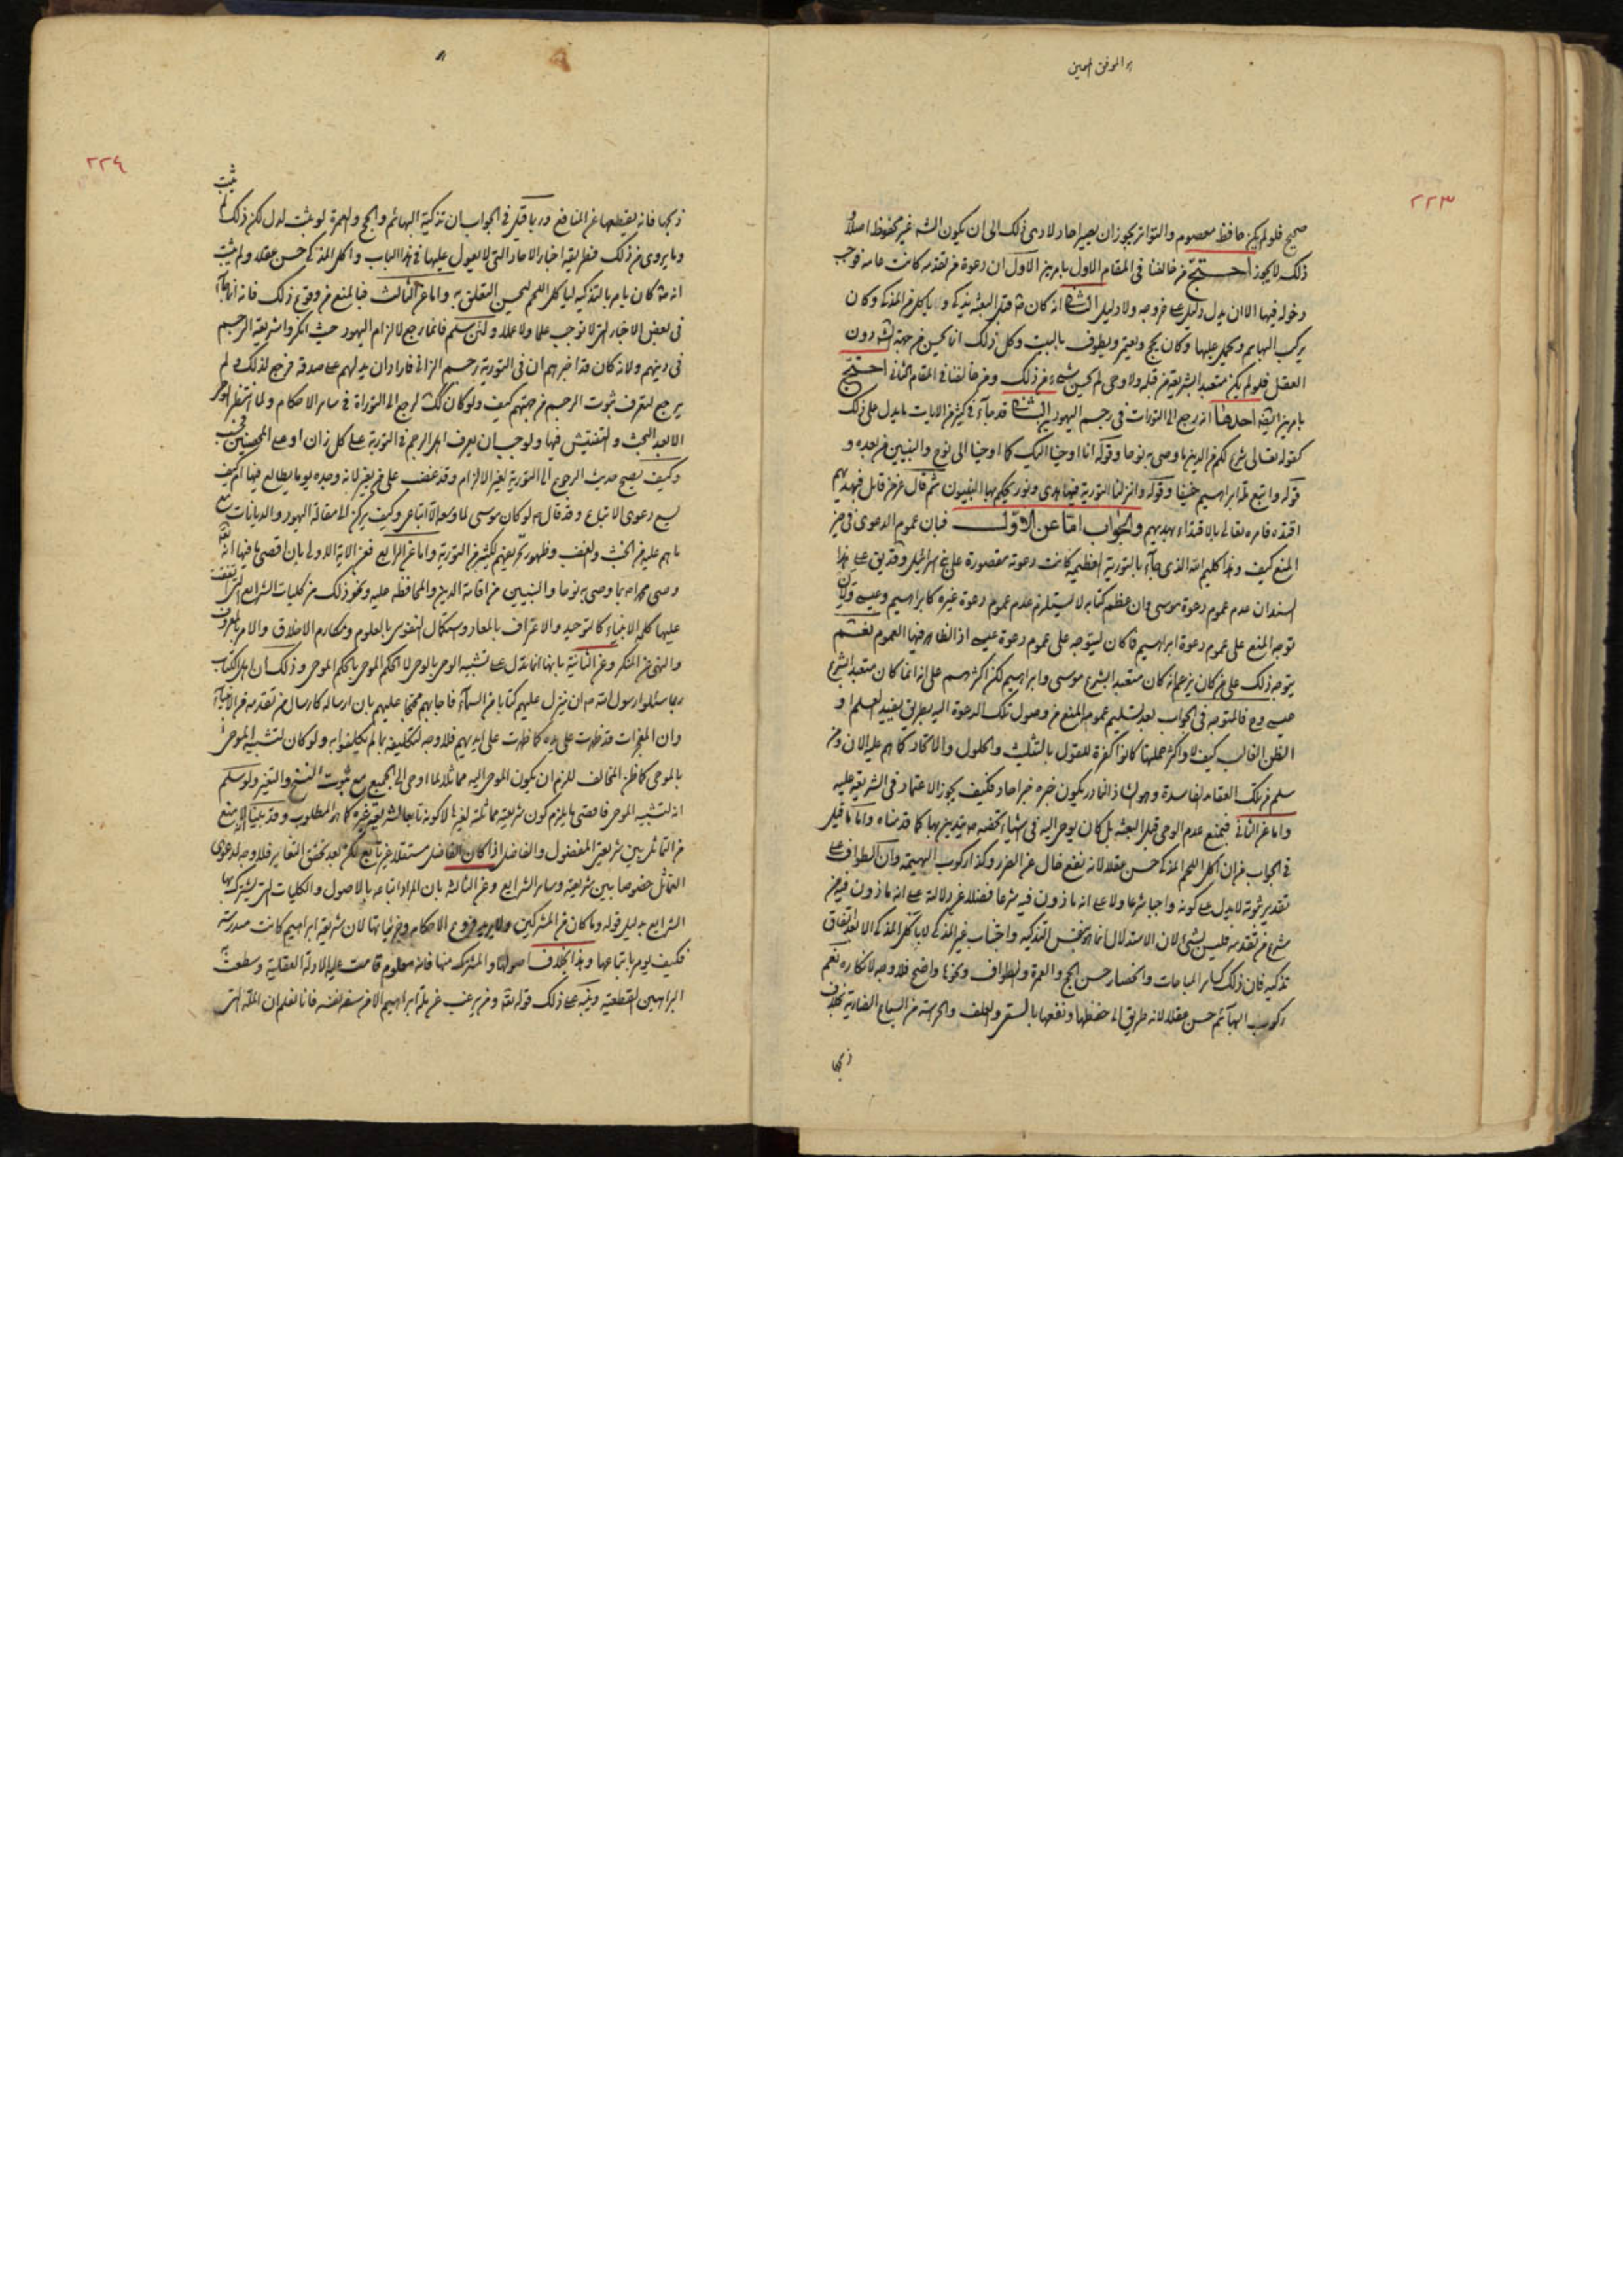 الموفق المعين
٢٢٣
صحيح فلو لم يكن حافظ معصوم والتواتر يجوز ان يصير احاد لادى ذلك الى ان يكون الشرع غير محفوظ اصلا و
ذلك لا يجوز احتج من خالفنا فى المقام الاول بامرين الاول ان دعوة من تقدمه كانت عامة فوجب
دخوله فيها الا ان يدل دليل على خروجه ولا دليل الثانى انه كان قبل البعثة يذكى ولا ياكل غير المذكى وكان
يركب البهايم ويحمل عليها وكان يحج ويعتمر ويطوف بالبيت وكل ذلك انما يحسن من جهة الشرع دون
العقل فلو لم يكن متعبدا بشريعة من قبله ولا وحى لم يحسن شىء من ذلك ومن خالفنا فى المقام الثانى احتج
بامرين ايضا احدهما انه رجع الى التورات فى رجم اليهود الثانى قد جاء فى كثير من الايات ما يدل على ذلك
كقوله تعالى شرع لكم من الدين ما وصى به نوحا وقوله انا اوحينا اليك كما اوحينا الى نوح والنبيين من بعده و
قوله واتبع ملة ابراهيم حنيفا وقوله وانزلنا التورية فيها هدى ونور يحكم بها النبيون ثم قال عز من قائل فبهديهم
اقتده فامره تعالى بالاقتداء بهديهم والجواب اما عن الاول فبان عموم الدعوى فى حيز
المنع كيف وهذا كليم الله الذى جاء بالتورية العظيمة كانت دعوته مقصورة على بنى اسرائيل وقد يق على هذا
السند ان عدم عموم دعوة موسى وان عظم كتابه لا يستلزم عدم عموم دعوة غيره كابراهيم وعيسى ولان
توجه المنع على عموم دعوة ابراهيم فما كان ليتوجه على عموم دعوة عيسى اذ الظاهر فيها العموم نعم
يتوجه ذلك على من كان يزعم انه كان متعبدا بشرع موسى وابراهيم لكن اكثرهم على انه انما كان متعبدا بشرع
عيسى وح فالمتوجه فى الجواب بعد تسليم عموم المنع من وصول تلك الدعوة اليه بطريق يفيد العلم او
الظن الغالب كيف لا واكثر حملتها كانوا كفرة للقول بالتثليث والحلول والاتحاد كما هم عليه الان ومن
سلم من تلك العقايد الفاسدة وهو الشاذ النادر يكون خبره خبر احاد فكيف يجوز الاعتماد فى الشريعة عليه
واما عن الثانى فبمنع عدم الوحى قبل البعثة بل كان يوحى اليه فى اشياء تخصه يتدين بها كما قدمناه واما ما قيل
فى الجواب من ان اكل اللحم المذكى حسن عقلا لانه نفع خال عن الضرر وكذا ركوب البهيمة وان الطواف على
تقدير ثبوته لا يدل على كونه واجبا شرعا ولا على انه ماذون فيه شرعا فضلا عن دلالته على انه ماذون فيه من
شرع من تقدمه فليس بشئ لان الاستدلال انما هو بنفس التذكية واجتناب غير المذكى لا باكل المذكى الا بعد اتفاق
تذكيه فان ذلك كسائر المباحات وانحصار حسن الحج والعمرة والطواف ونحوها واضح فلا وجه لانكاره نعم
ركوب البهائم حسن عقلا لانه طريق الى حفظها ونفعها بالسقى والعلف والحراسة من السباع الضارية بخلاف
ذبحها
٢٢٤
ذبحها فانه يقطعها عن المنافع وربما قيل فى الجواب ان تذكية البهائم والحج والعمرة لو ثبت لدل لكن ذلك لم
يثبت
وما يروى من ذلك فطريقه اخبار الاحاد التى لا يعول عليها فى هذا الباب واكل المذكى حسن عقلا ولم يثبت
انه كان يامر بالتذكية لياكل اللحم ليحسن التعلق به واما عن الثالث فبالمنع من وقوع ذلك فانه انما جاء
فى بعض الاخبار التى لا توجب علما ولا عملا ولئن سلم فانما رجع لالزام اليهود حيث انكروا شريعة الرجم
فى دينهم ولانه كان قد اخبرهم ان فى التورية رجم الزانى فاراد ان يدلهم على صدقه فرجع لذلك ولم
يرجع لتعرف ثبوت الرجم من جهتهم كيف ولو كان كك لرجع الى التوراة فى ساير الاحكام ولما انتظر الوحى
الا بعد البحث والتفتيش فيها ولوجب ان يعرف هل الرجم فى التورية على كل زان او على المحصنين فحسب
وكيف يصح حديث الرجوع الى التورية لغير الالزام وقد غضب على عمر لانه وجده يوما يطالع فيها ام كيف
يسع دعوى الاتباع وقد قال لو كان موسى لما وسعه الا اتباعى وكيف يركن الى مقالة اليهود والديانات مع
ما هم عليه من الخبث والغضب وظهور تحريفهم لكثير من التورية واما عن الرابع فعن الاية الاولى بان اقصى ما فيها انه
وصى محمدا بما وصى به نوحا والنبيين من اقامة الدين والمحافظة عليه ونحو ذلك من كليات الشرايع التى اتفقت
عليها كلمة الانبياء كالتوحيد والاعتراف بالمعاد واستكمال النفوس بالعلوم ومكارم الاخلاق والامر بالمعروف
والنهى عن المنكر وعن الثانية بانها انما تدل على تشبيه الوحى بالوحى لا الحكم الموحى بالحكم الموحى وذلك ان اهل الكتاب
ربما سئلوا رسول الله ان ينزل عليهم كتابا من السماء فاجابهم محتجا عليهم بان ارساله كارسال من تقدمه من الانبياء
وان المعجزات قد ظهرت على يده كما ظهرت على ايديهم فلا وجه لتكليفه بما لم يكلفوا به ولو كان لتشبيه الموحى
بالموحى كما ظن المخالف للزم ان يكون الموحى اليه مماثلا لما اوحى الى الجميع مع ثبوت النسخ والتغير ولو سلم
انه لتشبيه الموحى فاقصى ما يلزم كون شريعته مماثلة لغيرها لا كونه تابعا لشريعة غيره كما هو المطلوب وقد بينا الا منع
من التماثل بين شريعتى المفضول والفاضل اذا كان الفاضل مستقلا غير تابع لكن بعد تحقق التغاير فلا وجه لدعوى
التماثل خصوصا بين شريعته وساير الشرايع وعن الثالثة بان المراد اتباعه بالاصول والكليات التى يشترك بها
الشرايع بدليل قوله وما كان من المشركين ولا يريد فروع الاحكام وجزئياتها لان شريعة ابراهيم كانت مندرسة
فكيف يومر باتباعها وهذا بخلاف اصولها والمشترك منها فانه معلوم قامت عليه الادلة العقلية وسطعت به
البراهين القطعية وينبه على ذلك قوله تعالى ومن يرغب عن ملة ابراهيم الا من سفه نفسه فانا نعلم ان الملة التى